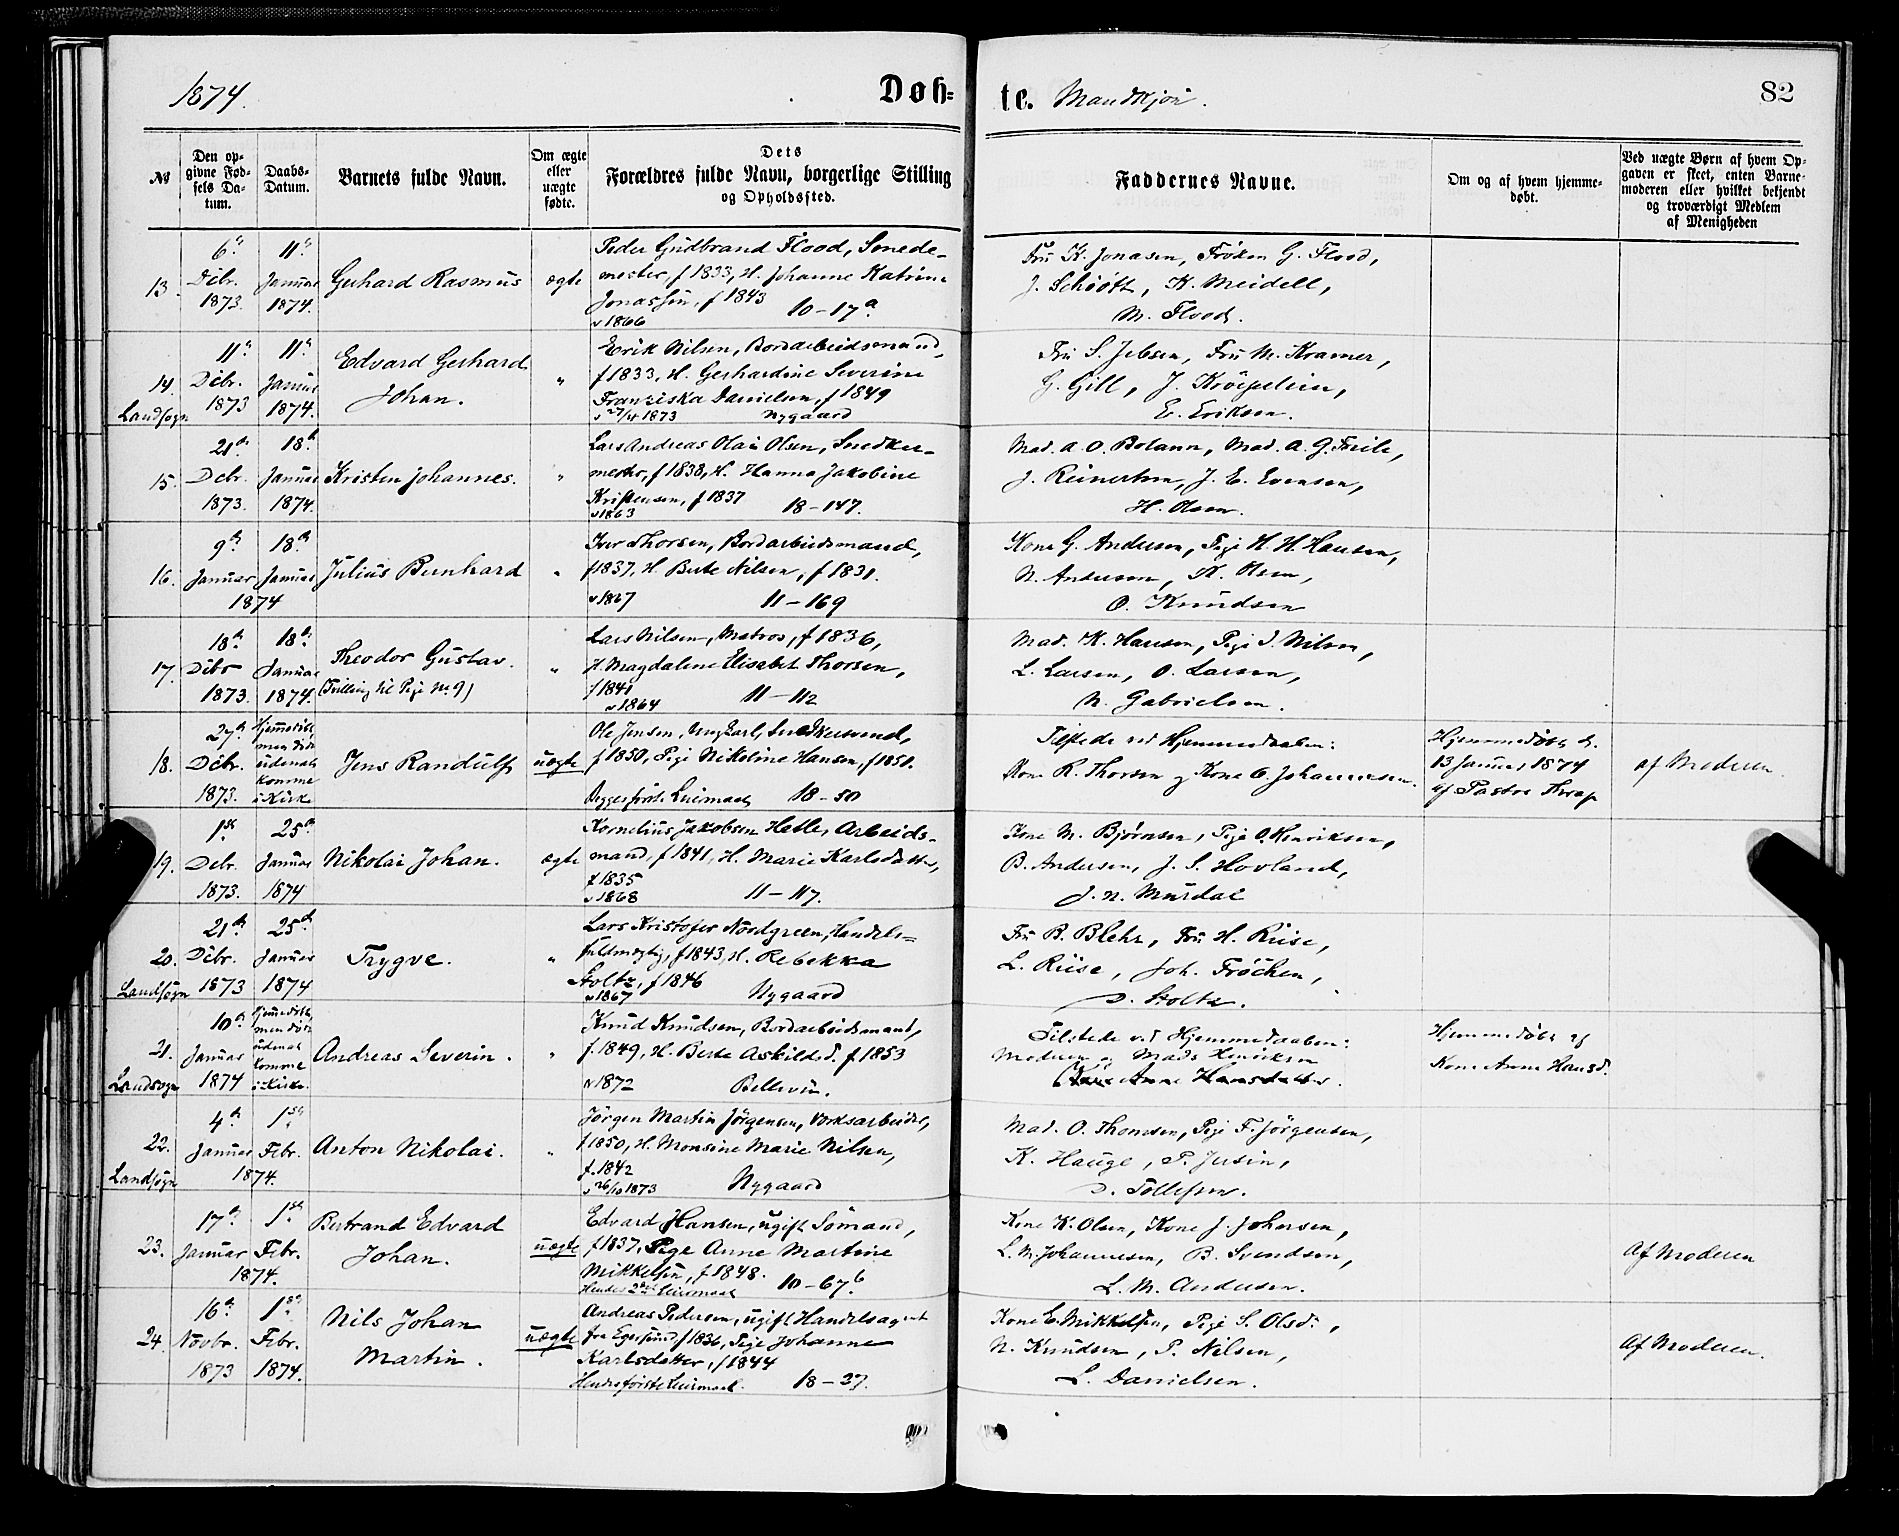 1874.
Døb=
te. Mandkjøn.
82
No
Den op-
givne Fød-
sels Da-
tum.
Daabs-
Datum.
Barnets fulde Navn.
Om ægte
eller
uægte
fødte.
Dets
Forældres fulde Navn, borgerlige Stilling
og Opholdssted.
Faddernes Navne.
Om og af hvem hjemme-
døbt.
Ved uægte Børn af hvem Op-
gaven er skeet, enten Barne-
moderen eller hvilket bekjendt
og troværdigt Medlem
af Menigheden
13.
6te
Decbr.
1873.
11te
Januar
1874.
Gerhard Rasmus
ægte
Peder Gudbrand Flood, Smede-
mester, f 1833, H. Johanne Katrine
Jonassen, f 1843
v 1866 10-17a
Fru K. Jonasen, Frøken G. Flood,
J. Schiøtt, K. Meidell,
M. Flood.
14.
Landsogn
11te
Decbr.
1873
11te
Januar
1874.
Edvard Gerhard
Johan.
"
Erik Nilsen, Bordarbeidsmand,
f 1833, H. Gerhardine Severine
Franziska Danielsen, f 1849
v 27/4 1873 Nygaard
Fru S. Jebsen, Fru M. Kramer,
G. Gill, J. Krøepelein,
E. Eriksen.
15.
21de
Decbr.
1873.
18de
Januar
1874.
Kristen Johannes.
"
Lars Andreas Olai Olsen, Snedker-
mester, f 1838, H. Hanna Jakobine
Kristensen, f 1837
v 1863 18-147.
Mad. A. O. Bolann, Mad. A. G. Friele,
J. Reinertsen, J. E. Evensen,
H. Olsen.
16.
9de
Januar
18de
Januar
1874
Julius Bernhard
"
Iver Thorsen, Bordarbeidsmand,
f 1837, H. Berte Nilsen, f 1831.
v 1867 11-169
Kone G. Andersen, Pige H. H. Hansen,
N. Andersen, K. Olsen,
O. Knudsen
17.
18de
Decbr
1873.
18de
Januar
1874.
Theodor Gustav.
(Tvilling til Pige No. 9)
"
Lars Nilsen, Matros, f 1836,
H. Magdalene Elisabet Thorsen,
f 1841
v 1864 11-112
Mad. K. Hansen, Pige I. Nilsen,
L. Larsen, O. Larsen,
N. Gabrielsen.
18.
27de
Decbr.
1873.
Hjemmedøbt,
men døde
uden at
komme
i Kirke
Jens Randulf
uægte
Ole Jensen, Ungkarl, Snedkersvend,
f 1850, Pige Nikoline Hansen, f 1851.
Begges første Leiermaal 18-50
Tilstede ved Hjemmedaaben:
Kone R. Thorsen og Kone O. Johannesen.
Hjemmedøbt d.
13 Januar 1874
af Pastor Krog
af Moderen.
19.
1ste
Decbr.
1873.
25de
Januar
1874
Nikolai Johan.
ægte
Kornelius Jakobsen Hetle, Arbeids-
mand, f 1841, H. Marie Karlsdatter,
f 1835
v 1868 11-117.
Kone M. Bjørnsen, Pige O. Henriksen,
B. Andersen, J. S. Hovland,
J. N. Murdal
20.
Landsogn
21de
Decbr.
1873
25de
Januar
1874
Trygve.
"
Lars Kristofer Nordgreen, Handels-
fuldmægtig, f 1843, H. Rebekka
Stoltz, f 1846
v 1867 Nygaard
Fru B. Blehr, Fru H. Riise,
L. Riise, Joh. Frøchen,
D. Stoltz.
21.
Landsogn
10de
Januar
1874
Hjemmedøbt,
men døde
uden at
komme
i Kirke.
Andreas Severin.
"
Knud Knudsen, Bordarbeidsmand,
f. 1849, H. Berte Askildsd. f. 1853
v 1872 Bellevue.
Tilstede ved Hjemmedaaben:
Moderen og Mads Henriksen
Kone Anne Hansdatter.
Hjemmedøbt af
Kone Anne Hansd.
22.
Landsogn
4de
Januar
1ste
Febr.
1874.
Anton Nikolai.
"
Jørgen Martin Jørgensen, Værksarbeider,
f 1850, H. Monsine Marie Nilsen,
f. 1842
v 26/10 1873 Nygaard
Mad. O. Thomsen, Pige F. Jørgensen,
K. Hauge, P. Jusin,
D. Tollefsen.
23.
17de
Januar
1ste
Febr.
1874.
Bertrand Edvard
Johan.
uægte
Edvard Hansen, ugift Sømand,
f 1837, Pige Anne Martine
Mikkelsen, f 1848.
Hendes 2det Leiermaal 10-67b
Kone K. Olsen, Kone J. Johnsen,
L. M. Johannesen, B. Svendsen,
L. M. Andersen.
Af Moderen
24.
16de
Novbr.
1873
1ste
Febr.
1874.
Nils Johan
Martin.
uægte
Andreas Pedersen, ugift Handelsagent
fra Egersund f 1836, Pige Johanne
Karlsdatter, f 1844
Hendes første Leiermaal. 18-27.
Kone E. Mikkelsen, Pige S. Olsd.,
N. Knudsen, P. Nilsen,
L. Danielsen.
Af Moderen.